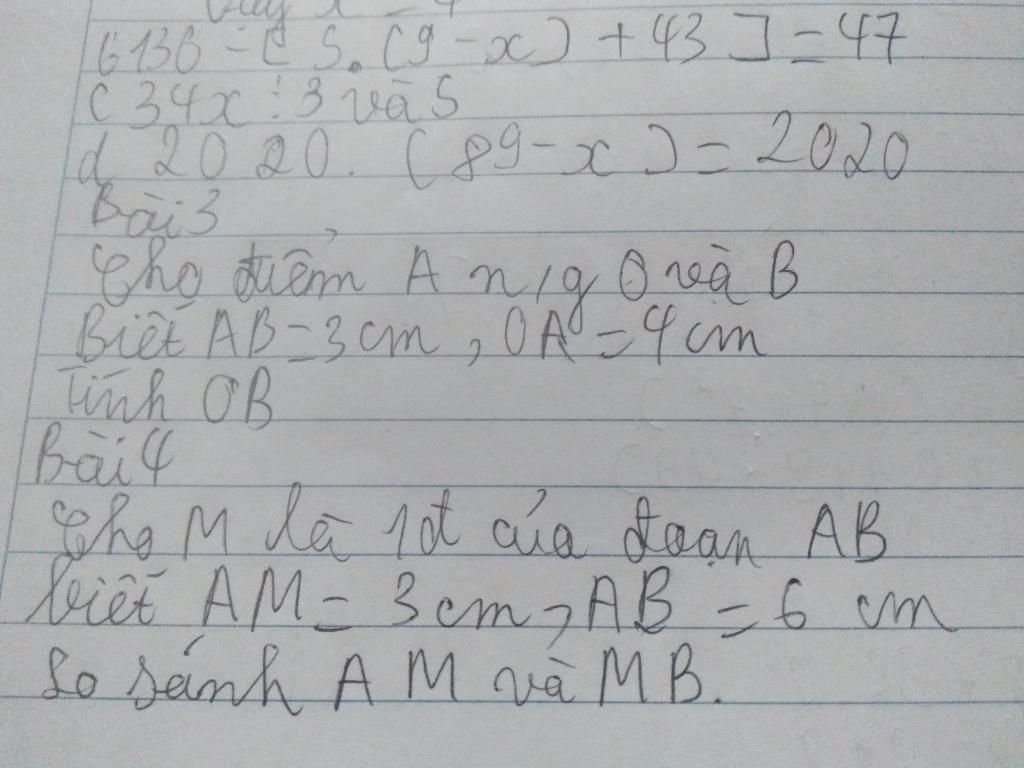 b 136 - [ 5. (9 - x) + 43 ] = 47
c 34x ⋮ 3 và 5
d 2020. (89 - x) = 2020
Bài 3
Cho điểm A n/g O và B
Biết AB = 3 cm, OA = 4 cm
Tính OB
Bài 4
Cho M là 1đ của đoạn AB
biết AM = 3 cm, AB = 6 cm
So sánh AM và MB.